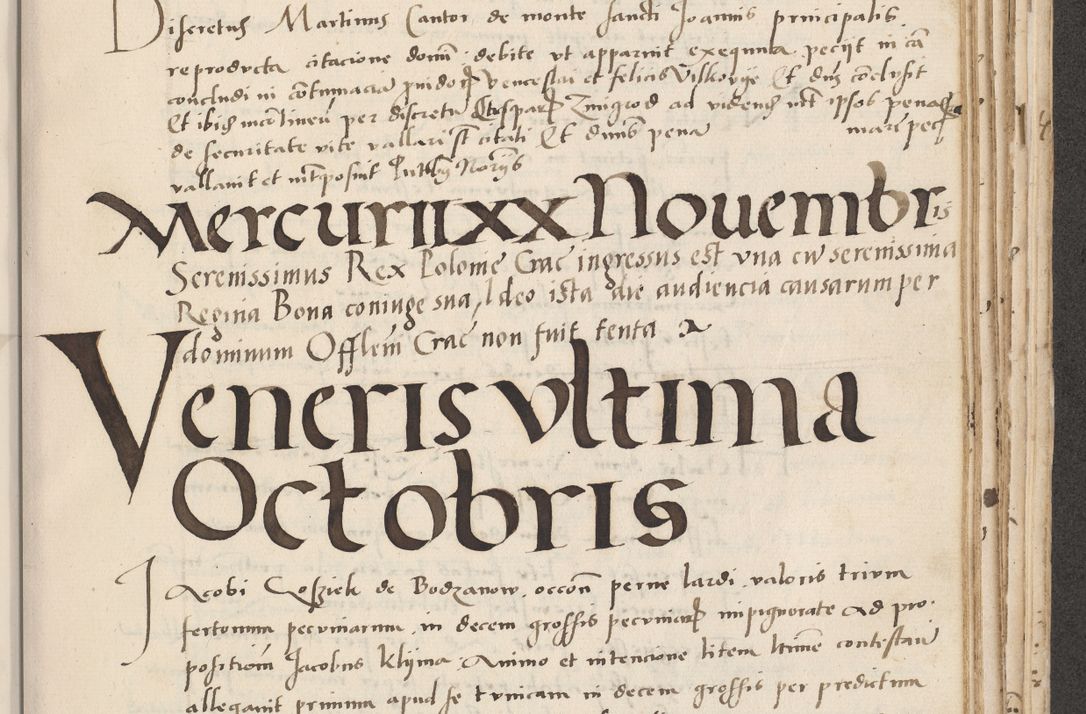 Discretus Martinus Cantor de monte sancti Joannis principalis
reproducta citacione domi debite ut apparuit exequuta peciit in ca
concludi in contumacia providorum Venceslai et felicis Vilkovije Et dns conclusit
Et ibidem per discretu Caspar Zmigrod ad videndum ipsos pena
de securitate vite vallari st citati Et dnus pena mari pecz
vallavit et
Mercurii xx Nouembris
Serenissimus Rex Polonie Crac ingressus est vna cu serenissima
Regina Bona coniuge sua, Ideo ista die audiencia causarum per
dominum Offlem Crac non fuit tenta
Veneris vltima
Octobris
Jacobi de Bodzanow occon perne lardi valoris trium
fertonum pecuniarum in decem grossis pecuniar impignorate Ad pro
positiom Jacobus Klyma Animo et intencione litem contestan
allegauit primum apud se tunicam in decem grossis per predictum